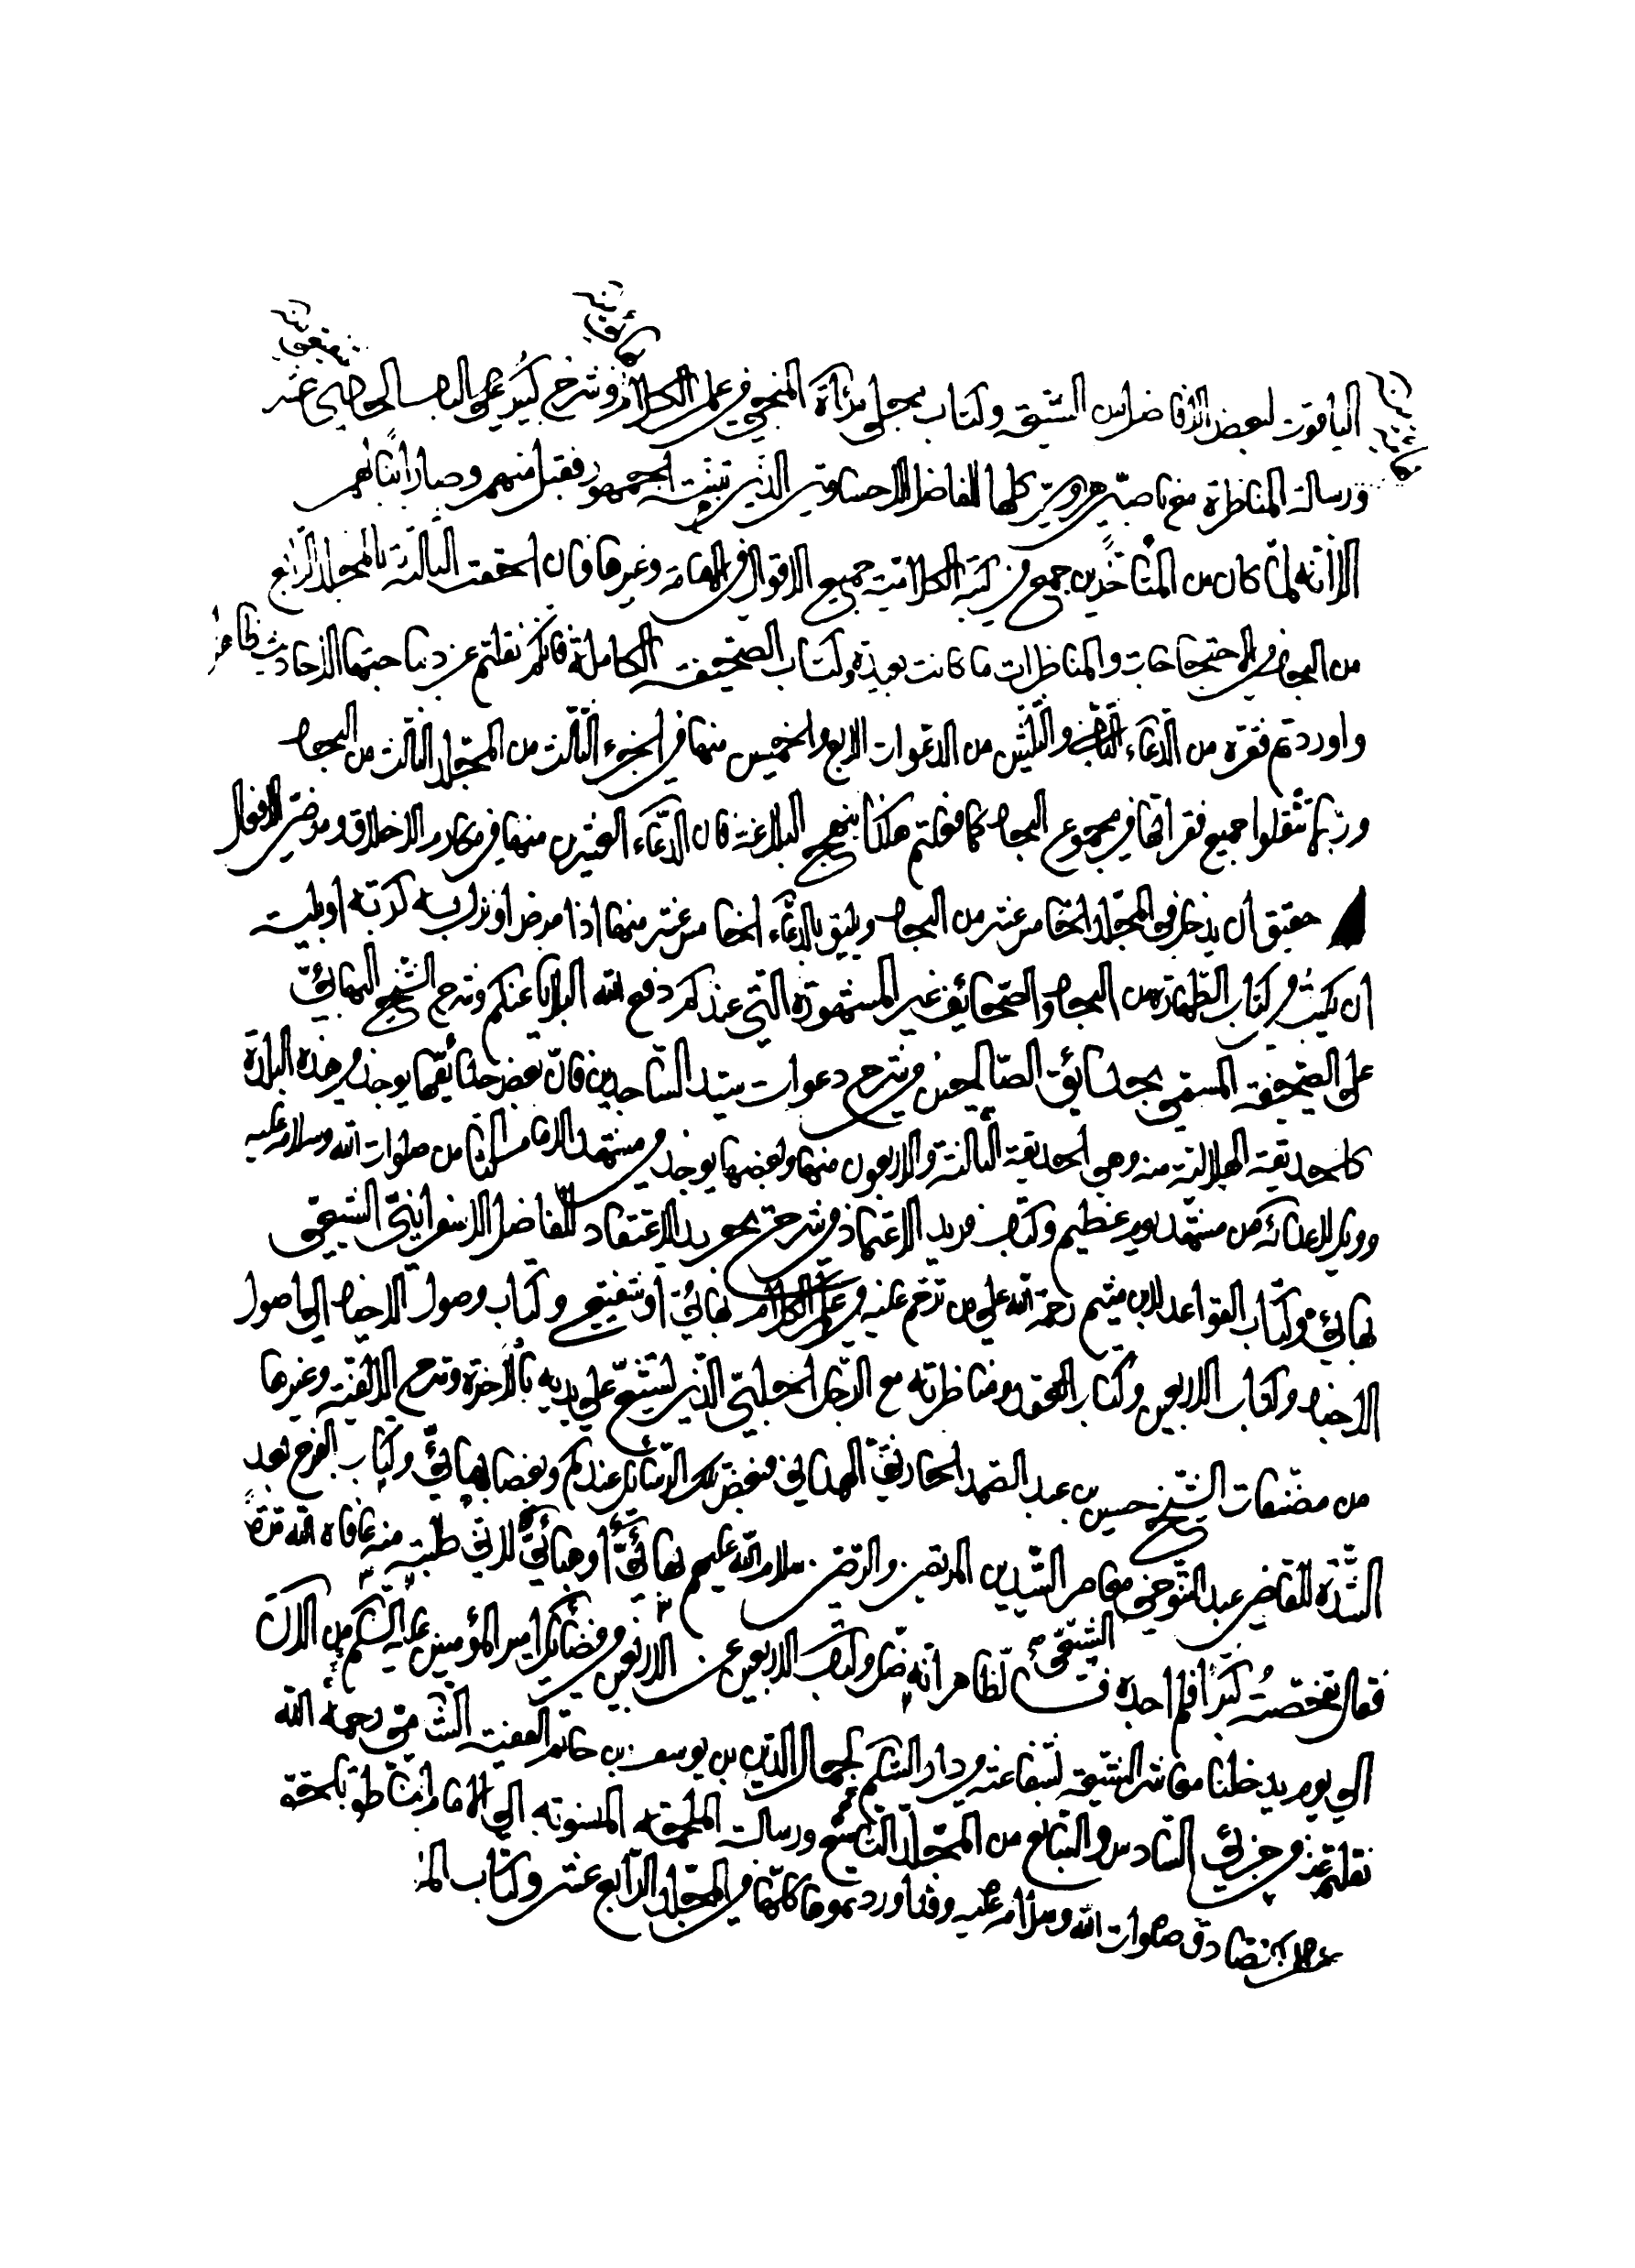 الياقوت لبعض الأفاضل من الشيعة وكتاب مجلي مرآة المنجي في علم الكلام وشرح كبير على الباب الحادي عشر
ورسالة المناظرة مع ناصبي هروي كلها للفاضل الاحساوي الذي تبنته الجمهور فقبل منهم وصار اثباتهم
الا أنه لما كان من المتأخرين جمع في كتبه الكلامية جميع الاقوال في الامامة وغيرها فان الحقت الثالثة بالمجلد الرابع
من البحار في الاحتجاجات والمناظرات ما كانت بعيدة وكتاب الصحيفة الكاملة فانكم نقلتم عن ديباجتها الأحاديث ظاهرا
واوردتم فقرة من الدعاء والثلثين من الدعوات الاربع والخمسين منها في الجزء الثالث من المجلد الثالث من البحار
وربما تنقلوا جميع فقراتها في مجموع البحار كما فعلتم هكذا بنهج البلاغة فان الدعاء العشرين منها في مكارم الاخلاق ومرضي الافعال
حقيق أن يذكر في المجلد الخامس عشر من البحار ويليق بالدعاء الخامس عشر منها اذا مرض او نزل به كربة او بلية
ان يكتب في كتاب الطهارة من البحار والصحائف غير المشهورة التي عندكم دفع الله البلايا عنكم وشرح الشيخ البهائي
على الصحيفة المسمى بحدائق الصالحين في شرح دعوات سيد الساجدين فان بعض حدائقها يوجد في هذه البلدة
كالحديقة الهلالية منه وهي الحديقة الثالثة والاربعون منها وبعضها يوجد في مشهد الامام الثامن صلوات الله وسلامه عليه
وويل لاعدائه من مشهد يوم عظيم وكتاب فريد الاعتماد في شرح تجريد الاعتقاد للفاضل الاسفرايني الشيعي
بهائي وكتاب القواعد لابن ميثم رحمة الله على من ترحم عليه في علم الكلام بهائي أو شفيعي وكتاب وصول الاخيار الى اصول
الاخبار وكتاب الاربعين وكتاب العقد ومناظرته مع الرجل الحلبي الذي تشيع على يديه بالآخرة وشرح الالفية وغيرها
من مصنفات الشيخ حسين بن عبد الصمد الحارثي الهمداني فبعض تلك الرسائل عندكم وبعضها بهائي وكتاب الفرج بعد
الشدة للقاضي عبد التنوخي معاصر السيدين المرتضى والرضي سلام الله عليهم بهائي أو ضيائي لاني طلبته منه عافاه الله مرة
فقال تفحصت كثيرا فلم اجده الشيعي لظاهر انه وكتاب الاربعين عن الاربعين في فضائل امير المؤمنين عليه السلام من الآن
الى يوم يدخلنا معاشر الشيعة بشفاعته في دار السلام لجمال الدين بن يوسف بن حاتم الفقيه الشامي رحمه الله
نقلتم عنه في جزئي السادس والسابع من المجلد التاسع ورسالة المنسوبة الى الامام
صادق صلوات الله وسلامه عليه وقد اوردتموها كلها في المجلد الرابع عشر وكتاب